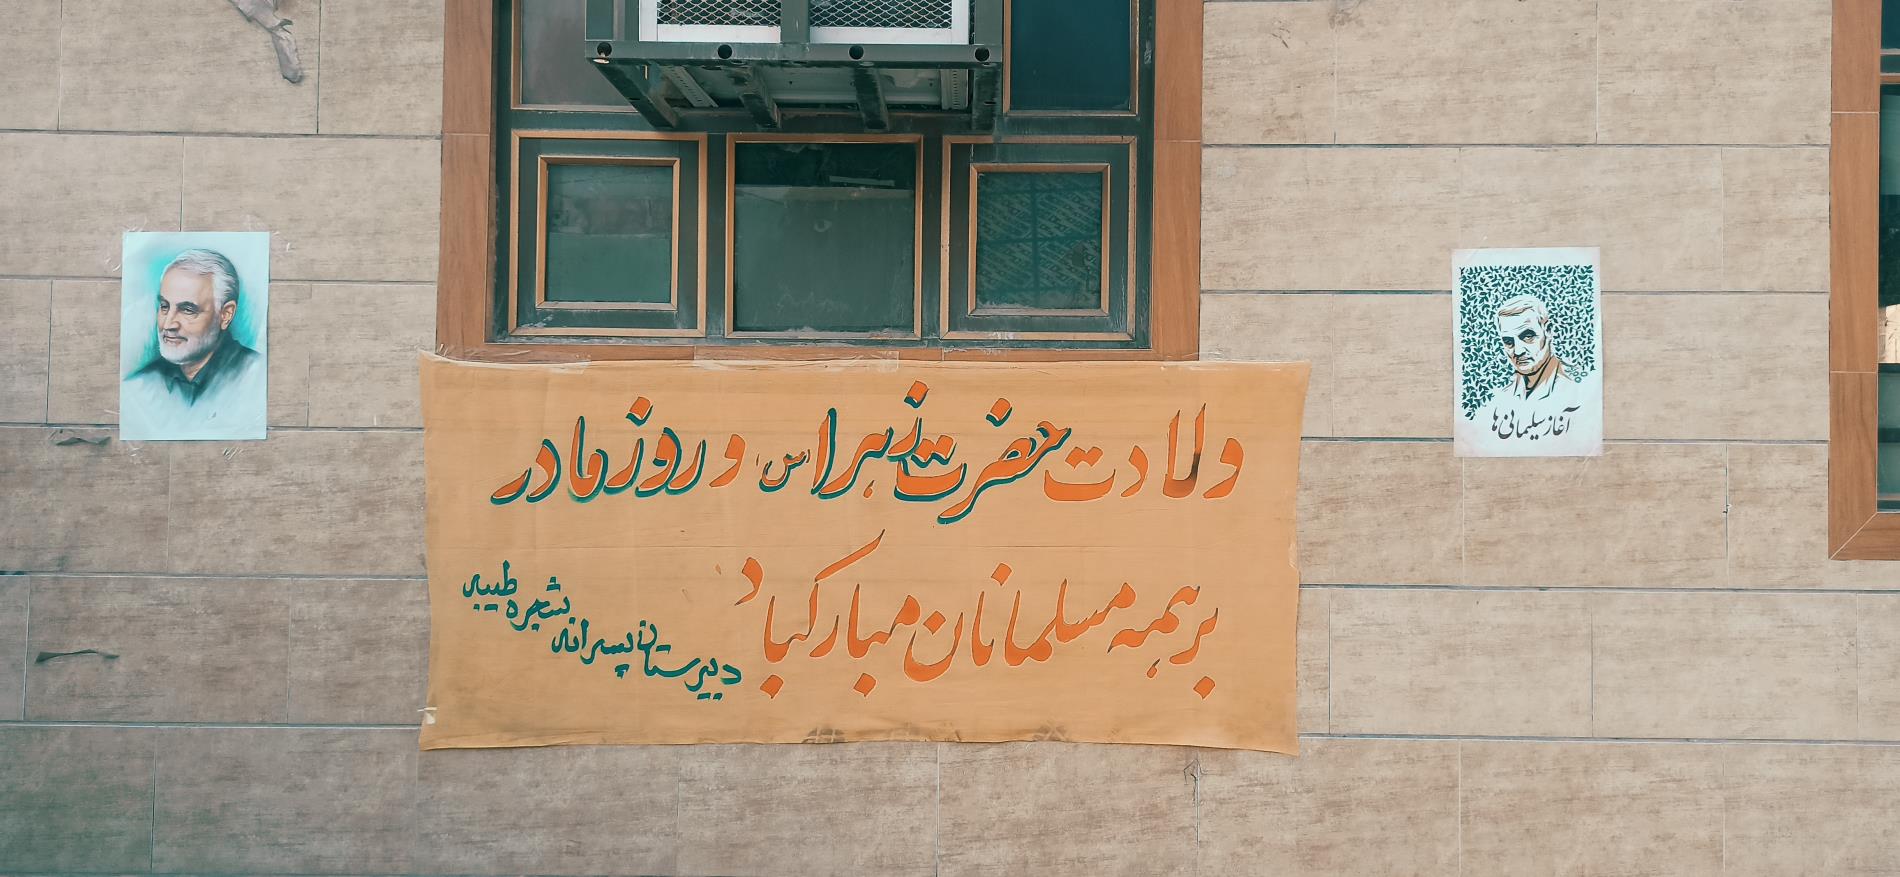 ولادت حضرت زهرا (س) و روز مادر
بر همه مسلمانان مبارکباد
دبیرستان پسرانه شجره طیبه
آغاز سلیمانی ها